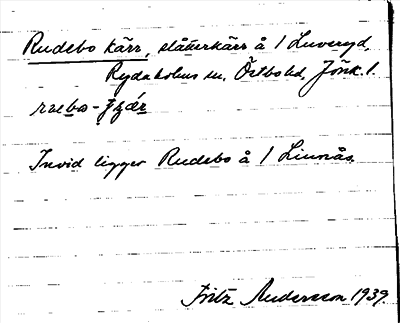 Rudebo kärr, slåtterkärr å 1 Luveryd,
Rydaholms sn, Östbo hd, Jönk. l.
Invid ligger Rudebo å 1 Linnås.
Fritz Andersson 1939